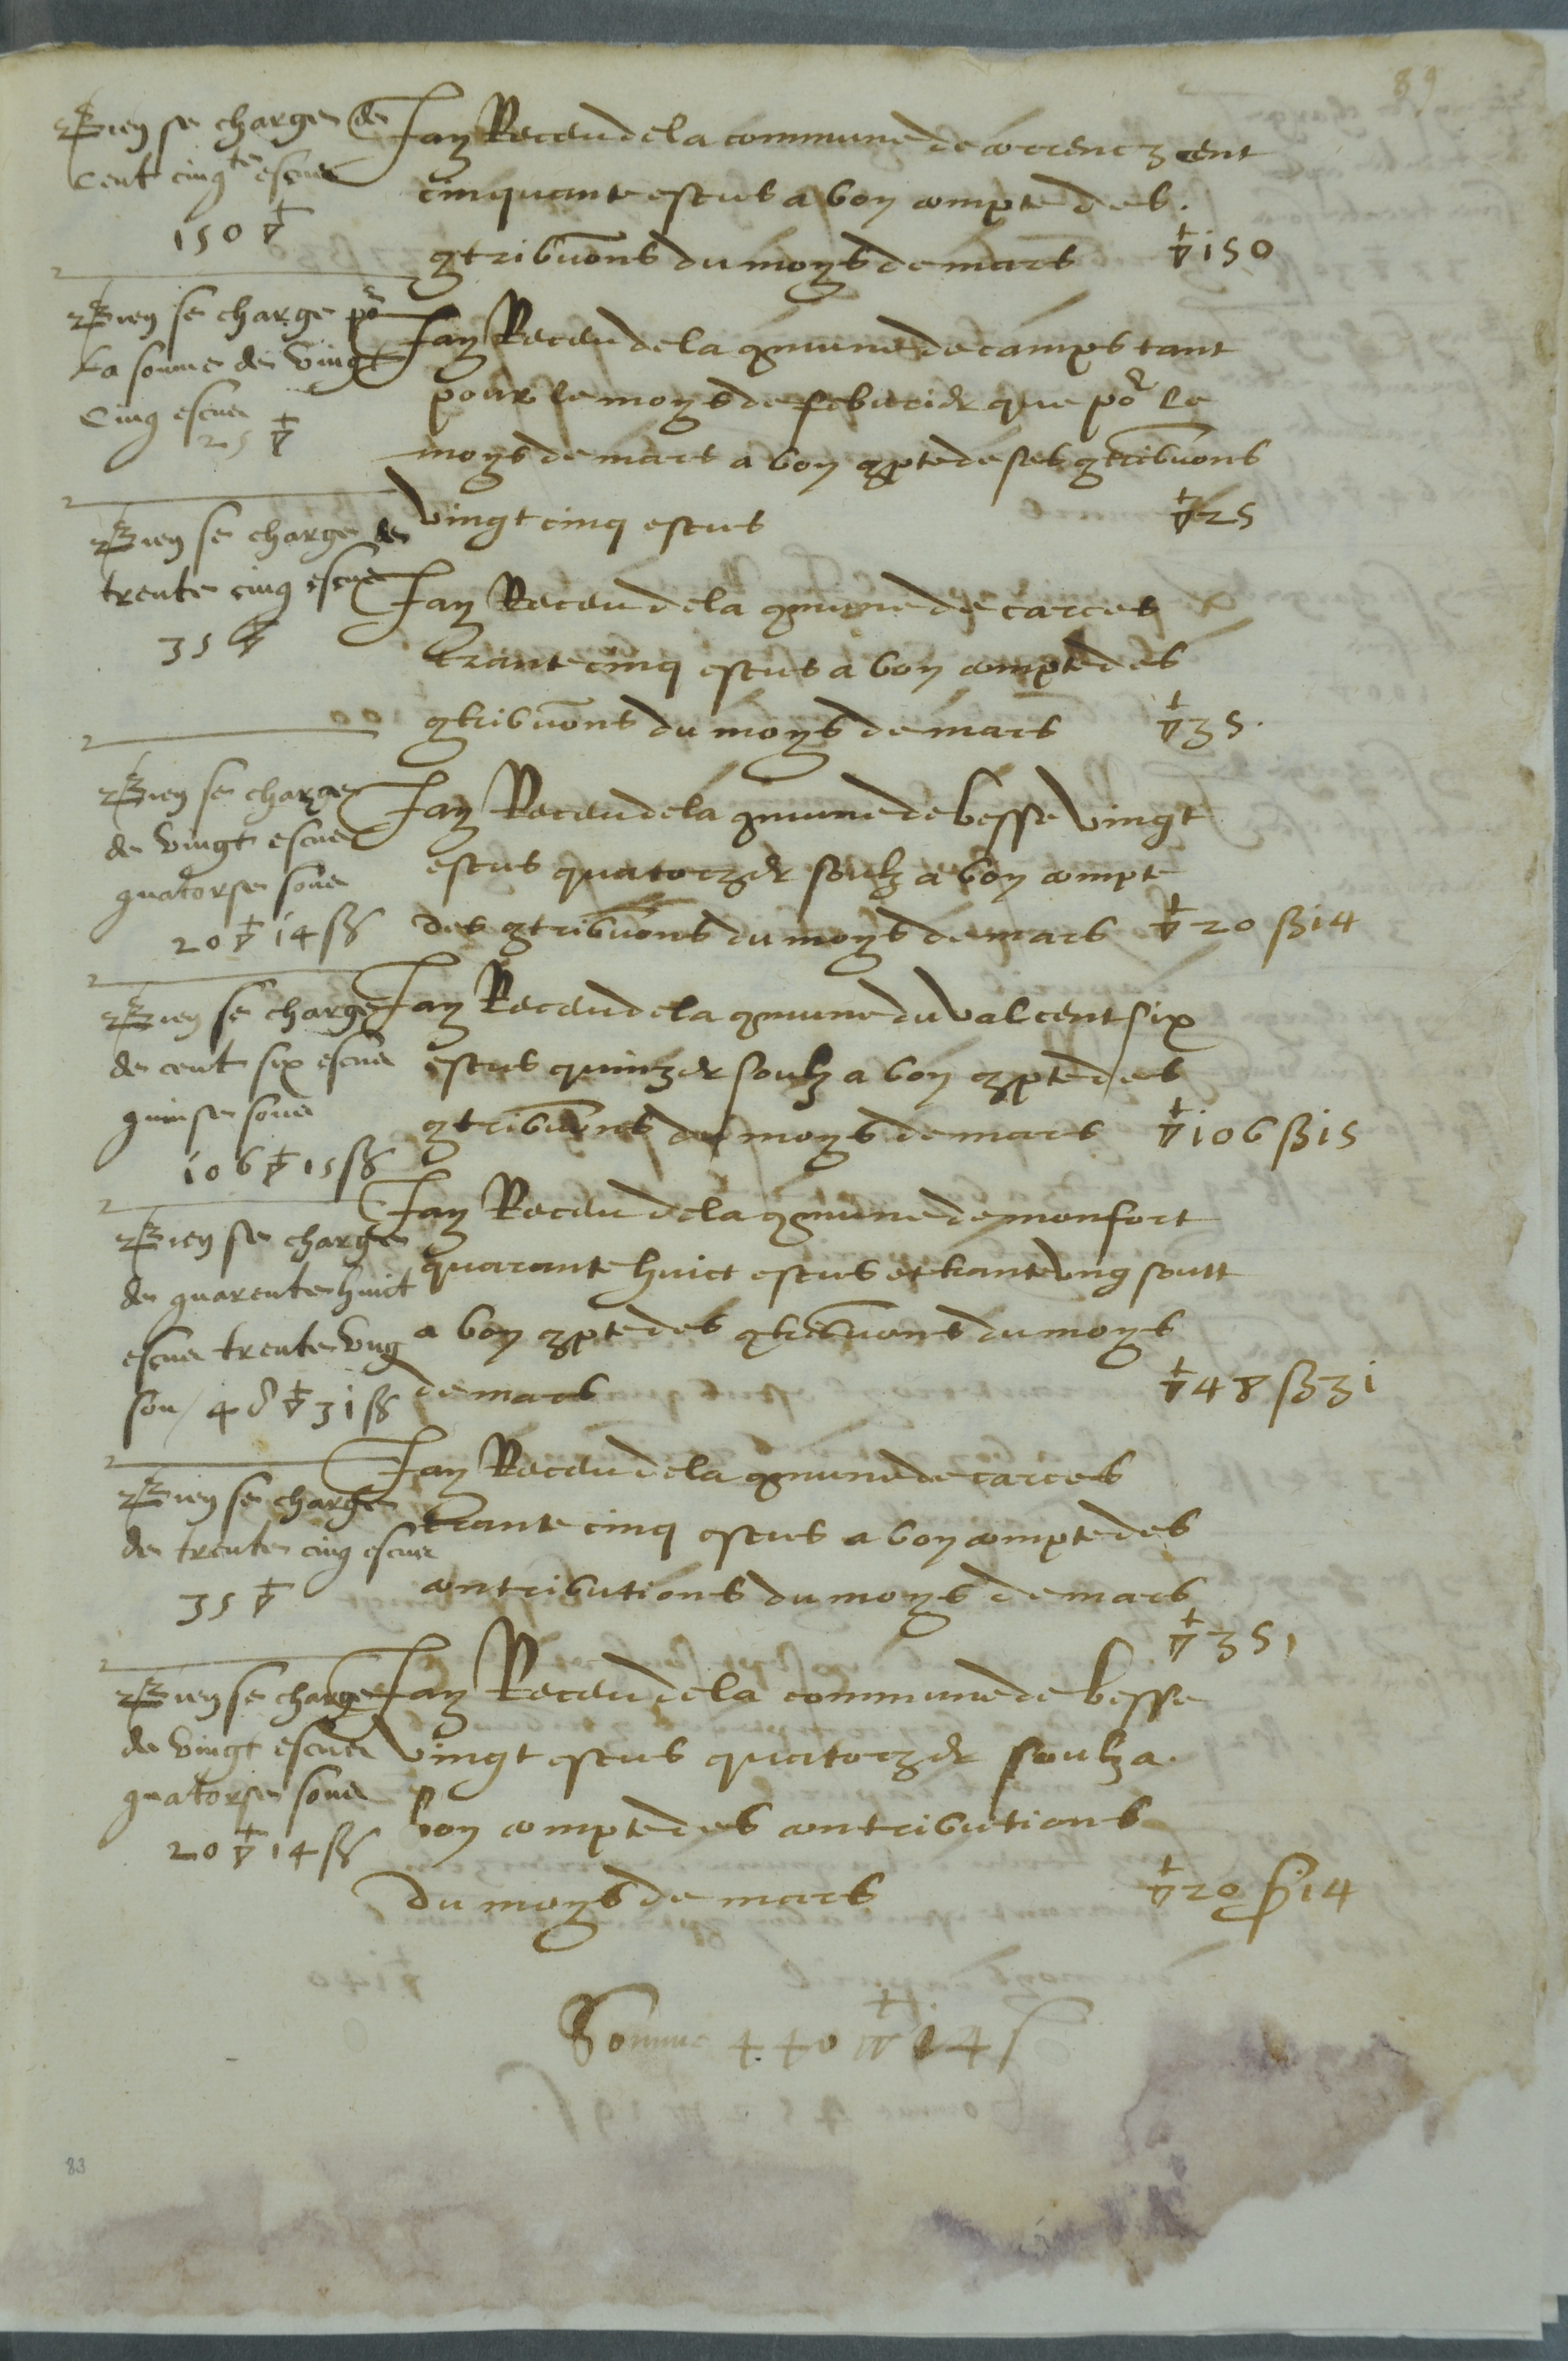 89
Bien se charge de
cent cinqte escus
150 ▽
Jay Receu de la commune de correnz cent
cinquante escus a bon compte des
9tribuons du moys de mars ▽ 150
Bien se charge por
la somme de vingt
cinq escus
25 ▽
Jay Receu de la 9mune de camps tant
pour le moys de febvrier que por le
moys de mars a bon 9pte de ses 9tribuons
vingt cinq escus ▽ 25
Bien se charge de
trente cinq escus
35 ▽
Jay Receu de la 9mune de carces
trante cinq escus a bon compte des
9tribuons du moys de mars ▽ 35.
Bien se charge
de vingt escus
quatorse sous
20 ▽ 14 ß
Jay Receu de la 9mune de besse vingt
escus quatorze soulz a bon compte
des 9tribuons du moys de mars ▽ 20 ß 14
Bien se charge
de cent six escus
quinse sous
106 ▽ 15 ß
Jay Receu de la 9mune du val cent six
escus quinze soulz a bon 9pte des
9tribuons du moys de mars ▽ 106 ß 15
Bien se charge
de quarente huict
escus trente ung
sou / 48 ▽ 31 ß
Jay Receu de la 9mune de monfort
quarante huict escus et trante ung soult
a bon 9pte des 9tribuons du moys
de mars ▽ 48 ß 31
Bien se charge
de trente cinq escus
35 ▽
Jay Receu de la 9mune de carces
trante cinq escus a bon compte des
contributions du moys de mars
▽ 35
Bien se charge
de vingt escus
quatorse sous
20 ▽ 14 ß
Jay Receu de la commune de besse
vingt escus quatorze soulz a
bon compte des contributions
du moys de mars ▽ 20 ß 14
Somme 440 ▽ 14 s
83